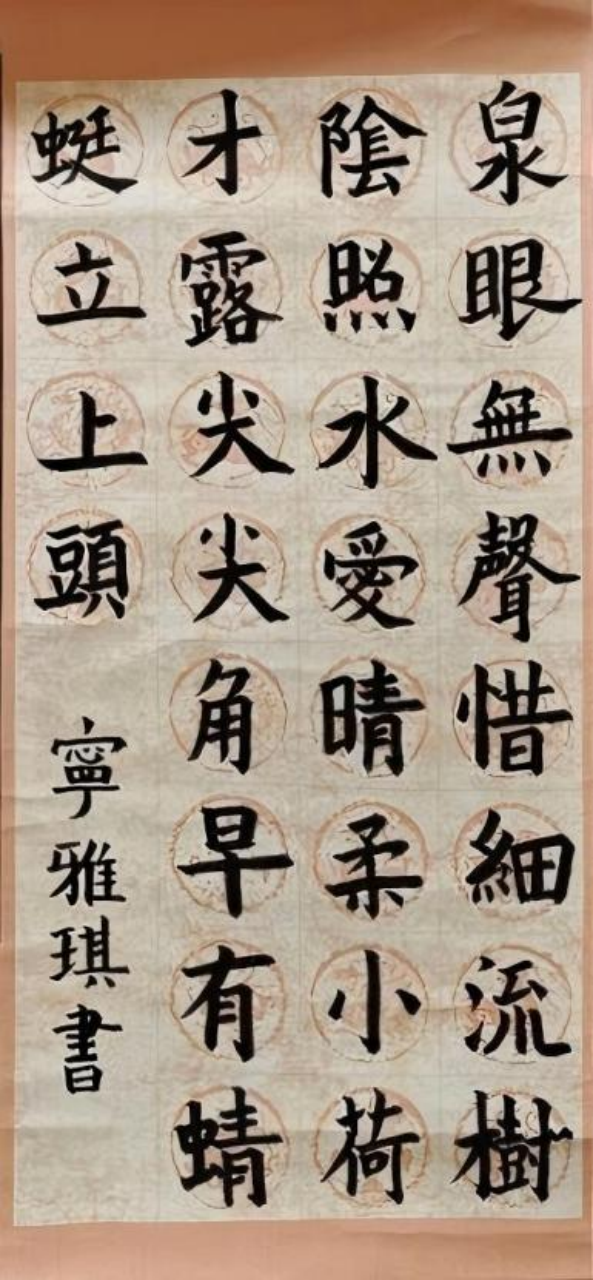 泉眼無聲惜細流樹
陰照水愛晴柔小荷
才露尖尖角早有蜻
蜓立上頭
寧雅琪書